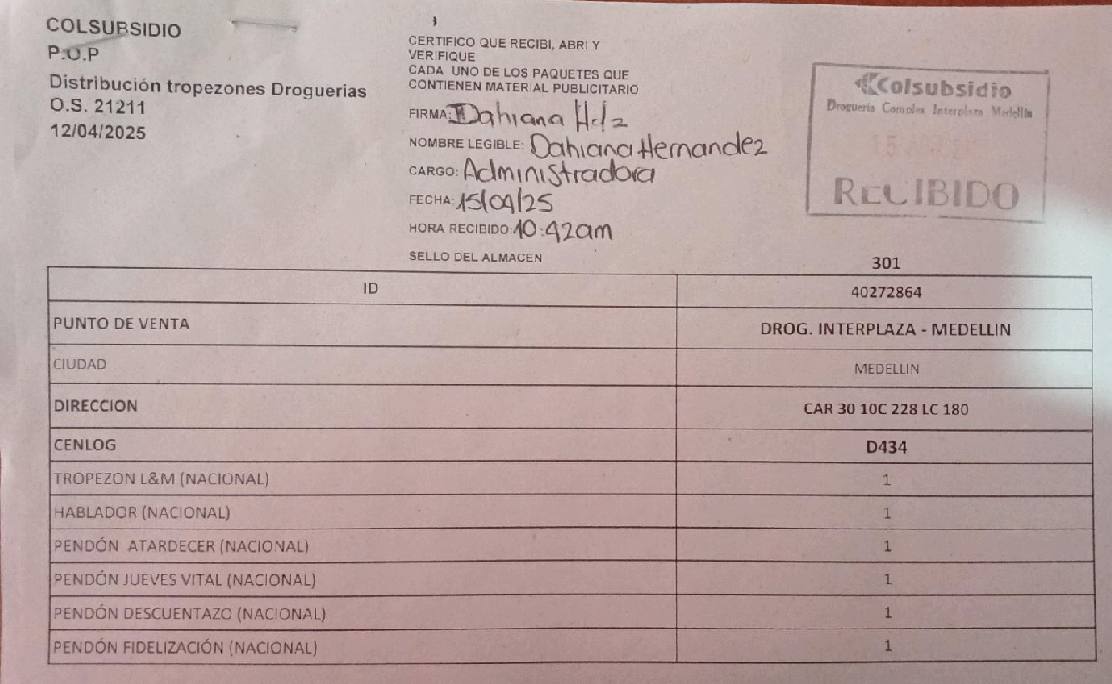 COLSUBSIDIO
P.O.P
Distribución tropezones Droguerias
O.S. 21211
12/04/2025
CERTIFICO QUE RECIBI, ABRI Y
VERIFIQUE
CADA UNO DE LOS PAQUETES QUE
CONTIENEN MATERIAL PUBLICITARIO
FIRMA: Dahiana Hdz
NOMBRE LEGIBLE: Dahiana Hernandez
CARGO: Administradora
FECHA: 15/04/25
HORA RECIBIDO: 10:42am
SELLO DEL ALMACEN
Colsubsidio
Droguería Interplaza Medellín
15
RECIBIDO
301
ID 40272864
PUNTO DE VENTA DROG. INTERPLAZA - MEDELLIN
CIUDAD MEDELLIN
DIRECCION CAR 30 10C 228 LC 180
CENLOG D434
TROPEZON L&M (NACIONAL) 1
HABLADOR (NACIONAL) 1
PENDÓN ATARDECER (NACIONAL) 1
PENDÓN JUEVES VITAL (NACIONAL) 1
PENDÓN DESCUENTAZO (NACIONAL) 1
PENDÓN FIDELIZACIÓN (NACIONAL) 1